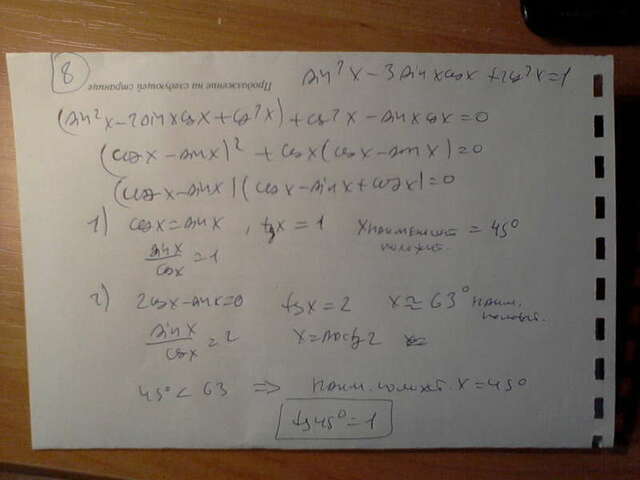 8
Продолжение на следующей странице
sin²x - 3 sinx cosx + 2cos²x = 1
(sin²x - 2sinxcosx + cos²x) + cos²x - sinx cosx = 0
(cosx - sinx)² + cosx(cosx - sinx) = 0
(cosx - sinx)(cosx - sinx + cosx) = 0
1) cosx = sinx, tgx = 1 x наименьш. полож. = 45°
sinx/cosx = 1
2) 2cosx - sinx = 0 tgx = 2 x ≈ 63° наим. полож.
sinx/cosx = 2 x = arctg 2 x =
45° < 63 ⇒ наим. полож. x = 45°
tg45° = 1